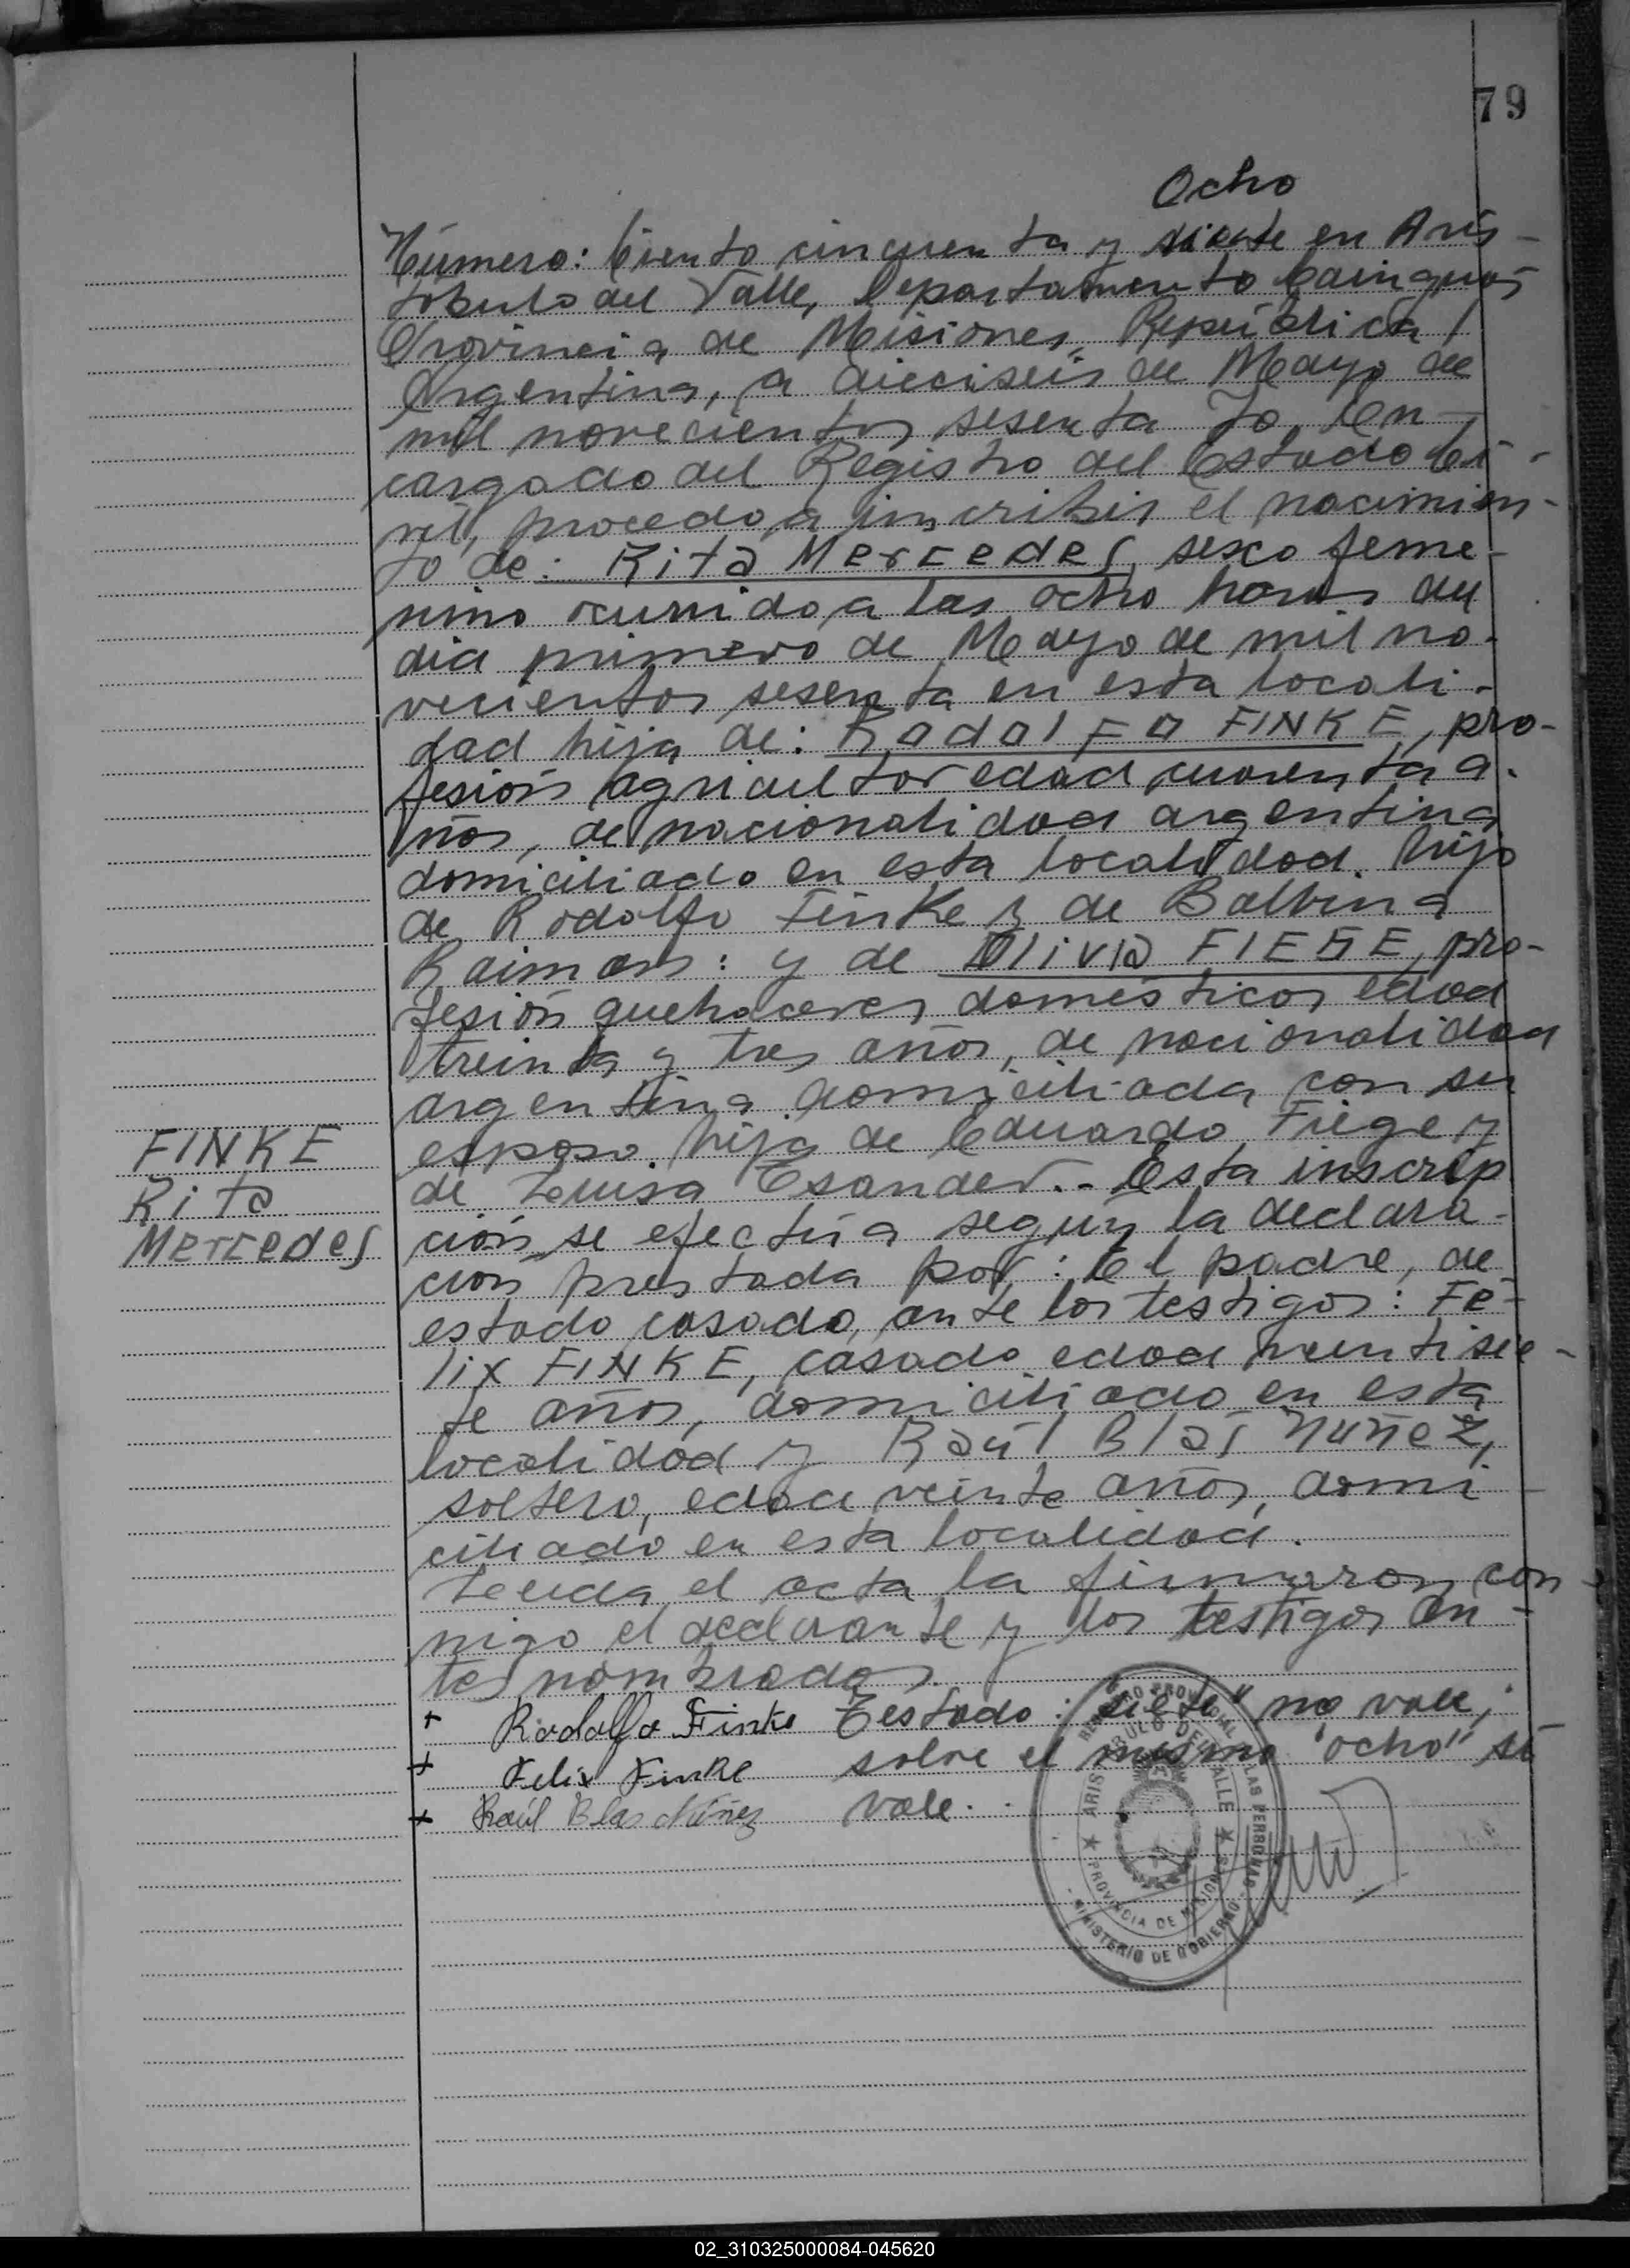 79
Ocho
Número: Ciento cincuenta y siete en Aris-
tobulo del Valle, Departamento Cainguás
Provincia de Misiones, República
Argentina, a dieciseis de Mayo de
mil novecientos sesenta Yo, En-
cargado del Registro del Estado Ci-
vil, procedo a inscribir el nacimien-
to de: Rita Mercedes, sexo feme-
nino ocurrido a las ocho horas del
dia primero de Mayo de mil no-
vecientos sesenta en esta locali-
dad hija de: Rodolfo FINKE, pro-
fesión agricultor edad cuarenta a-
ños, de nacionalidad argentina
domiciliado en esta localidad. hijo
de Rodolfo Finke y de Balbina
Raimann: y de Olivia FIEGE, pro-
fesión quehaceres domésticos edad
treinta y tres años, de nacionalidad
argentina domiciliada con su
esposo. hija de Eduardo Fiege y
de Luisa Esander.- Esta inscrip
ción se efectúa según la declara-
ción prestada por: El padre, de
estado casado, ante los testigos: Fé-
lix FINKE, casado edad veintisie-
te años, domiciliado en esta
localidad y Raúl Blas Nuñez,
soltero, edad veinte años, domi-
ciliado en esta localidad.
Leida el acta la firmaron con-
migo el declarante y los testigos an-
tes nombrados.
FINKE
Rita
Mercedes
+ Rodolfo Finke Testado: "siete" no vale;
+ Felix Finke sobre el mismo "ocho" sí
+ Raúl Blas Núñez vale.
REGISTRO PROVINCIAL DE LAS PERSONAS
ARISTOBULO DEL VALLE
★ PROVINCIA DE MISIONES ★
- MINISTERIO DE GOBIERNO -
02_310325000084-045620